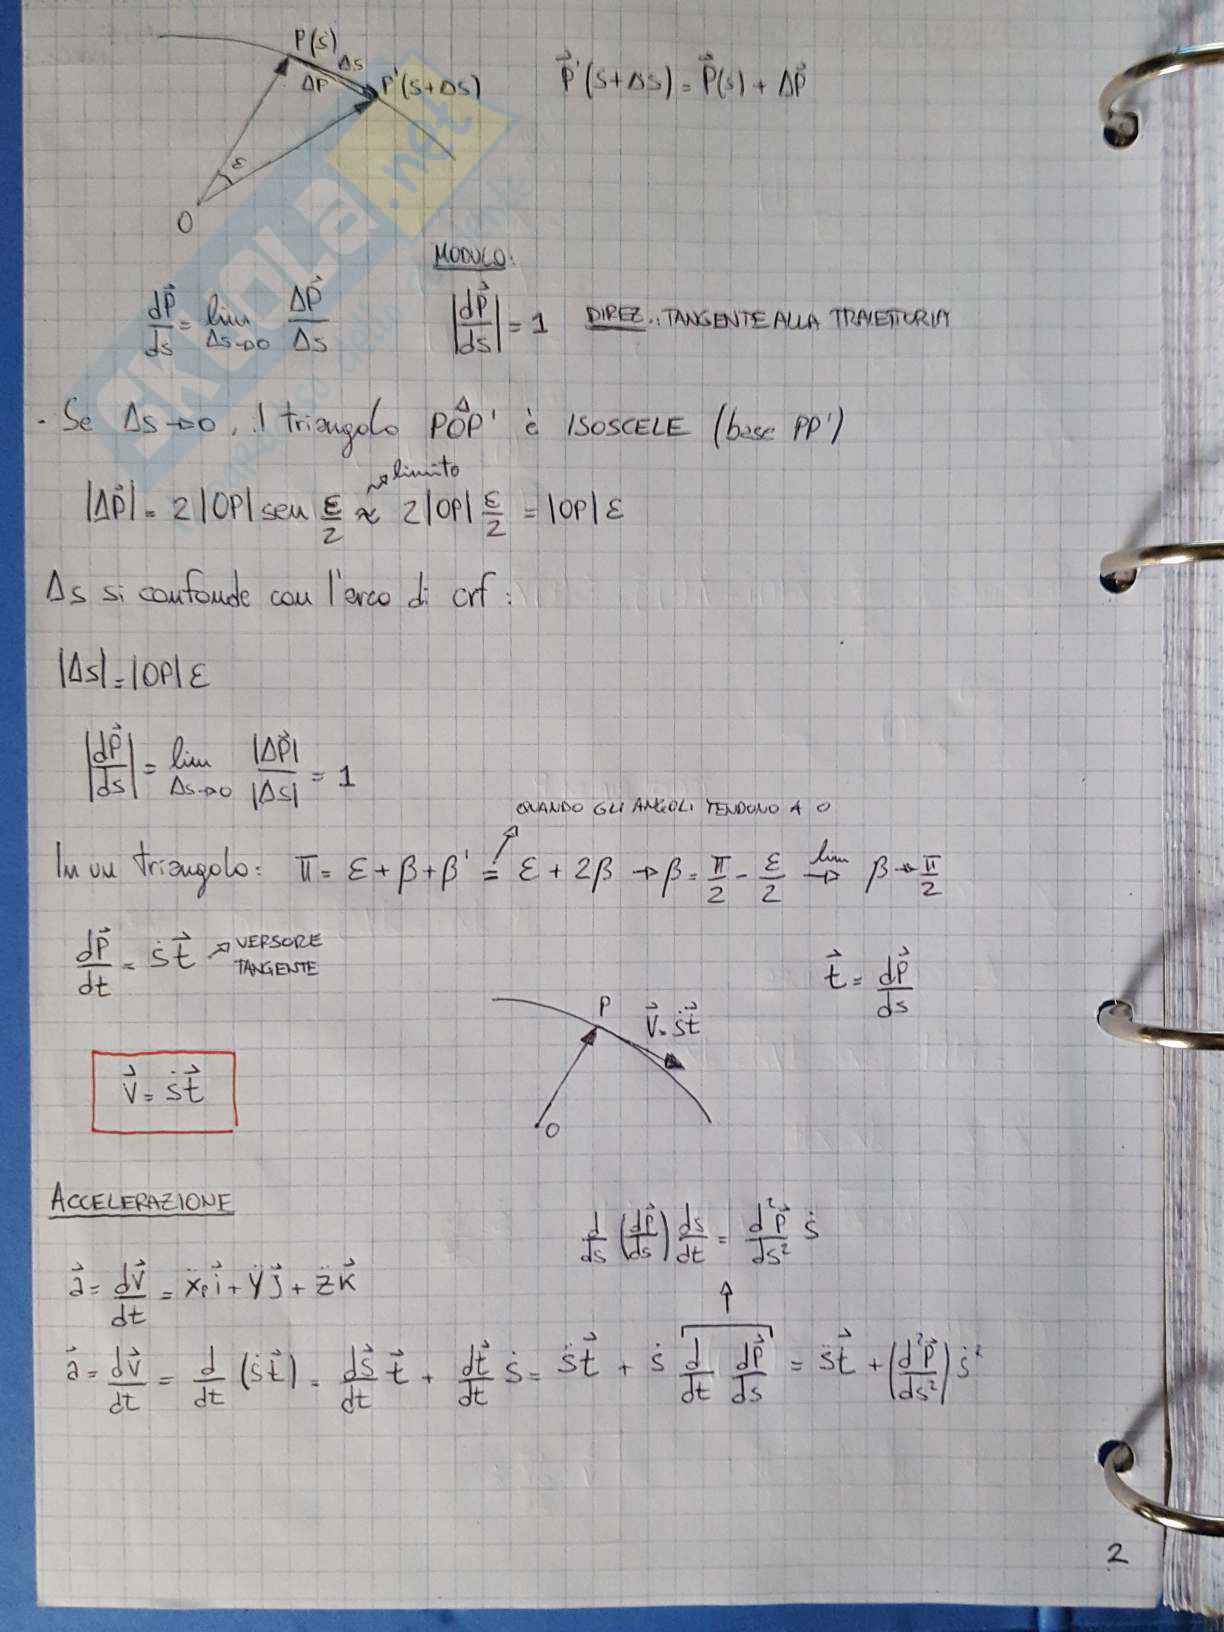 P(s)
Δs
ΔP
P'(s+Δs)
P⃗'(s+Δs) = P⃗(s) + ΔP⃗
ε
O
SKUOLA.net
MODULO:
dP⃗/ds = lim Δs→0 ΔP⃗/Δs
|dP⃗/ds| = 1 DIREZ.: TANGENTE ALLA TRAIETTORIA
- Se Δs→0, il triangolo PÔP' è ISOSCELE (base PP')
limite
|ΔP⃗| = 2|OP| sen ε/2 ≈ 2|OP| ε/2 = |OP|ε
Δs si confonde con l'arco di crf:
|Δs| = |OP|ε
|dP⃗/ds| = lim Δs→0 |ΔP⃗|/|Δs| = 1
QUANDO GLI ANGOLI TENDONO A 0
In un triangolo: π = ε + β + β' = ε + 2β → β = π/2 - ε/2 lim→ β → π/2
dP⃗/dt = ṡt⃗ → VERSORE
TANGENTE
t⃗ = dP⃗/ds
P
V⃗ = ṡt⃗
O
V⃗ = ṡt⃗
ACCELERAZIONE
d/ds (dP⃗/ds) ds/dt = d²P⃗/ds² ṡ
a⃗ = dV⃗/dt = ẍi⃗ + ÿj⃗ + z̈k⃗
a⃗ = dV⃗/dt = d/dt (ṡt⃗) = dṡ/dt t⃗ + dt⃗/dt ṡ = s̈t⃗ + ṡ d/dt dP⃗/ds = s̈t⃗ + (d²P⃗/ds²) ṡ²
2